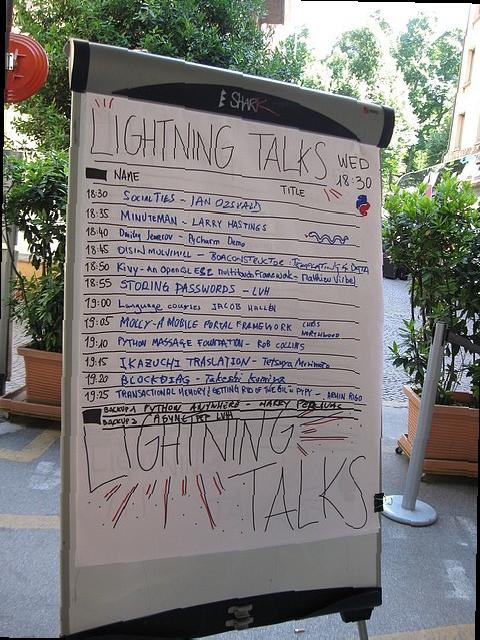 E SHARK
LIGHTNING TALKS WED
18:30
NAME TITLE
18:30 SOCIALTIES - IAN OZSVALD
18:35 MINUTEMAN - LARRY HASTINGS
18:40 Dmitry Jemerov - PyCharm Demo
18:45 - BOACONSTRUCTOR: TEMPLATING & DATA
18:50 Kivy - An OpenGLES2 multitouch Framework - Mathieu Virbel
18:55 STORING PASSWORDS - LVH
19:00 Language courses JACOB HALLÉN
19:05 MOLLY - A MOBILE PORTAL FRAMEWORK CHRIS
NORTHWOOD
19:10 PYTHON MASSAGE FOUNDATION - ROB COLLINS
19:15 IKAZUCHI TRASLATION - Tetsuya Morimoto
19:20 BLOCKDIAG - Takeshi Komiya
19:25 TRANSACTIONAL MEMORY / GETTING RID OF THE GIL in PYPY - ARMIN RIGO
BACKUP 1 PYTHON ANYWHERE - HARRY PERCIVAL
BACKUP 2 LVH
LIGHTNING
TALKS